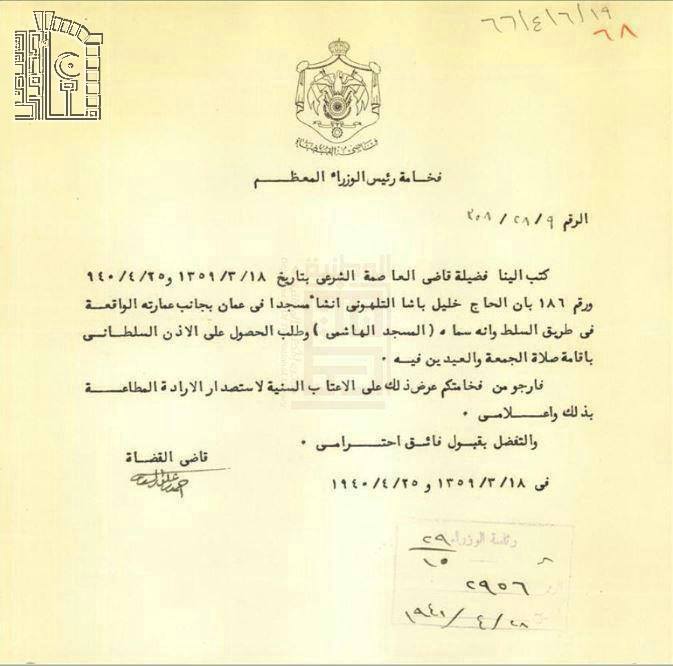 ٦٦/٤/٦/١٩
٦٨
فخامة رئيس الوزراء المعظم
الرقم ٢٠٨/٢٨/٩
كتب الينا فضيلة قاضى العاصمة الشرعى بتاريخ ١٣٥٩/٣/١٨ و٩٤٠/٤/٢٥
ورقم ١٨٦ بان الحاج خليل باشا التلهونى انشأ مسجدا فى عمان بجانب عمارته الواقعة
فى طريق السلط وانه سماه (المسجد الهاشمى) وطلب الحصول على الاذن السلطانى
باقامة صلاة الجمعة والعيدين فيه ٠
فارجو من فخامتكم عرض ذلك على الاعتاب السنية لاستصدار الارادة المطاعة
بذلك واعلامى ٠
والتفضل بقبول فائق احترامى ٠
قاضى القضاة
فى ١٣٥٩/٣/١٨ و ١٩٤٠/٤/٢٥
رئاسة الوزراء
٢٩
١٥
٢٩٥٦
٢٨/٤/١٩٤٠